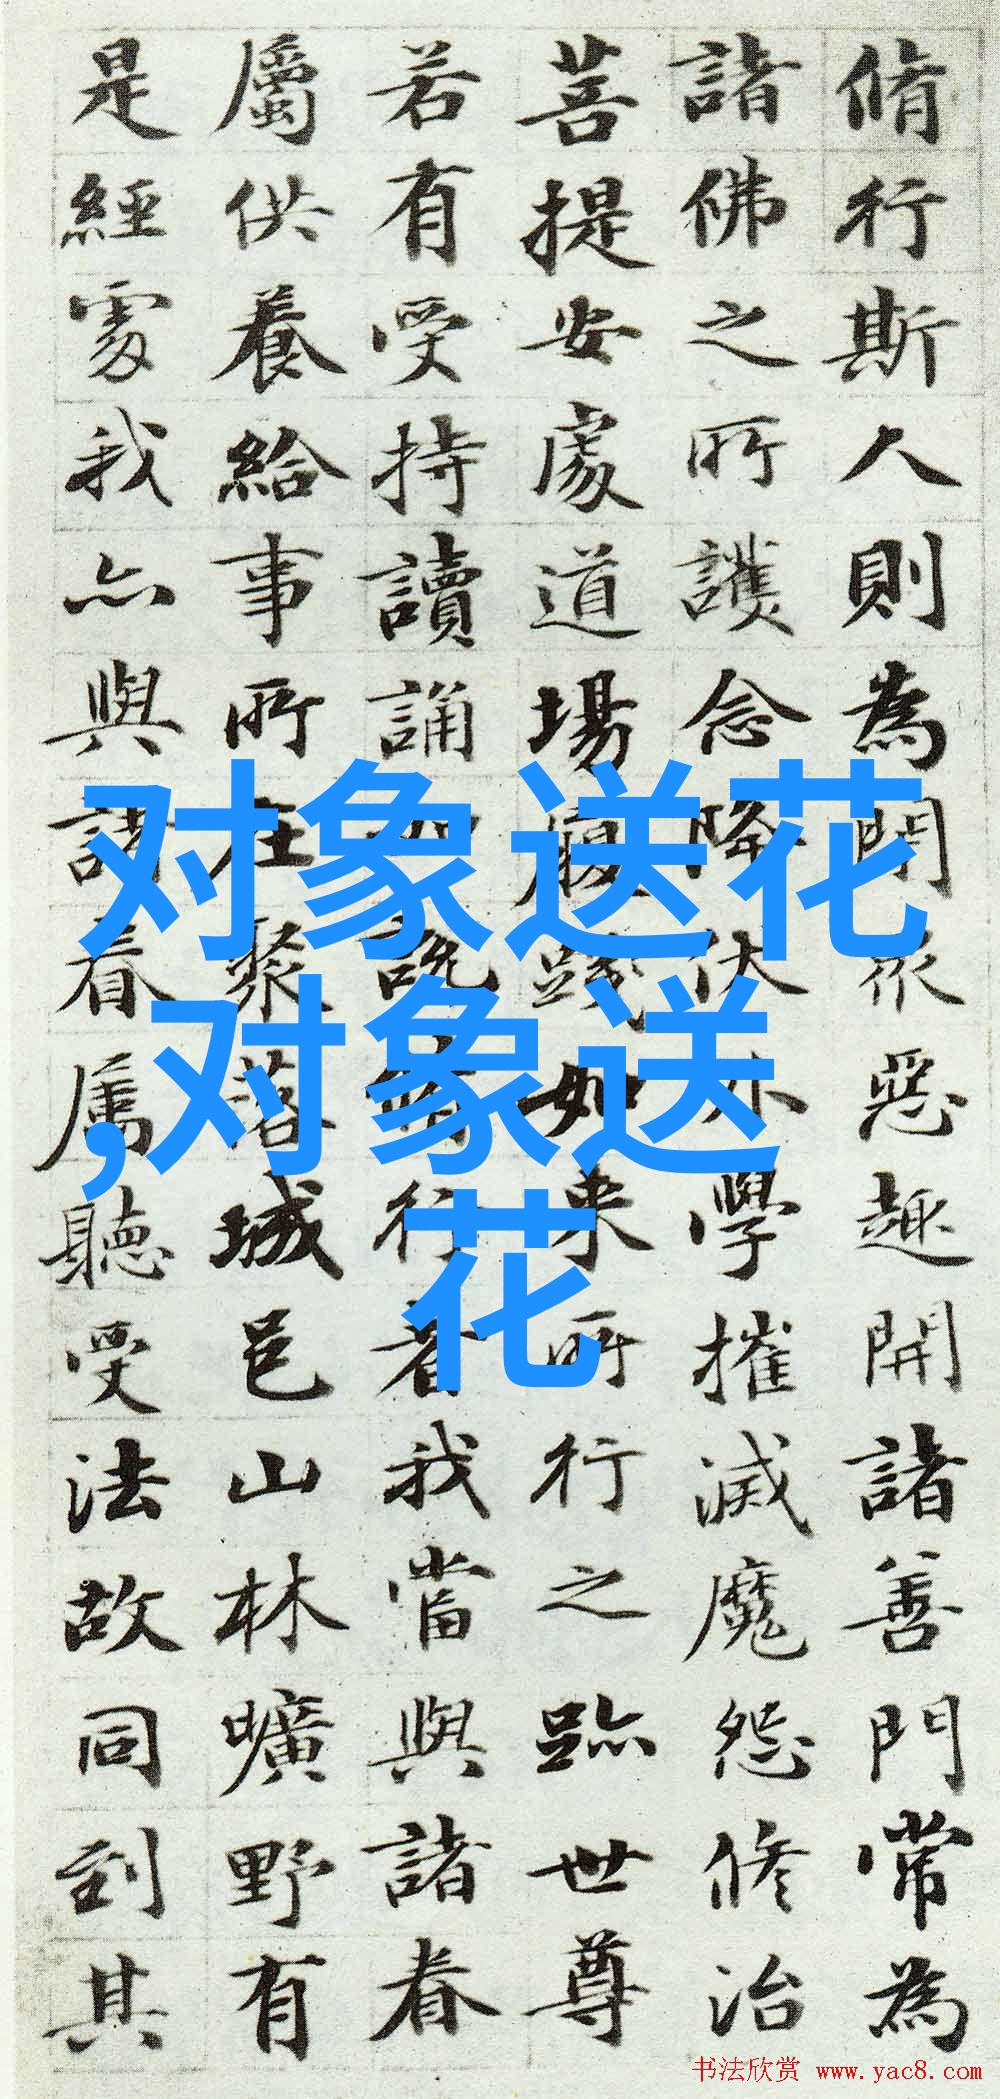 脩行斯人則為閇衆惡趣開諸善門常為
諸佛之所護念降伏外學摧滅魔怨修治
菩提安處道場履踐如来所行之跡世尊
若有受持讀誦如說脩行者我當與諸眷
屬供養給事所在聚落城邑山林曠野有
是經處我亦與諸眷属聽受法故同到其
对象送花
,对象送
花
书法欣赏 www.yac8.com